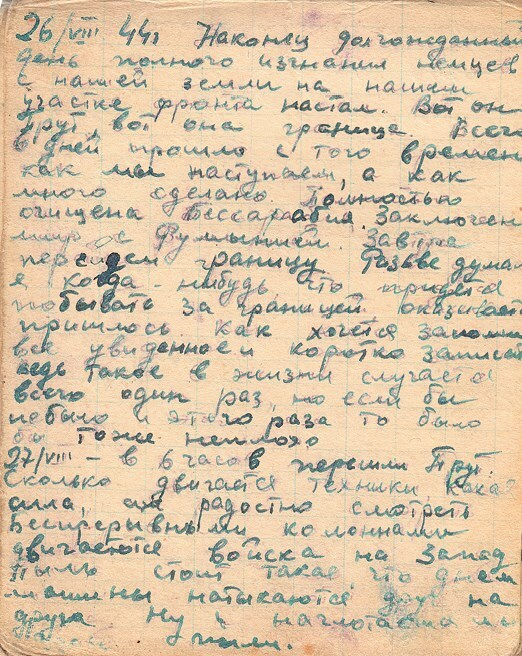 26/VIII 44г Наконец долгожданный
день полного изгнания немцев
с нашей земли на нашем
участке фронта настал. Вот он
Прут, вот она граница. Всего
6 дней прошло с того времени
как мы наступаем, а как
много сделано. Полностью
очищена Бессарабия. Заключен
мир с Румынией. Завтра
перейдем границу. Разве думал
я когда-нибудь что придется
побывать за границей оказывается
пришлось. Как хочется запомнить
все увиденное и коротко записать
ведь такое в жизни случается
всего один раз, но если бы
небыло и этого раза то было
бы тоже неплохо
27/VIII - в 6 часов перешли Прут.
Сколько двигается техники, какая
сила, радостно смотреть
Беспрерывными колоннами
двигаются войска на Запад
Пыль стоит такая, что днем
машины натыкаются друг на
друга. Ну и наглотались мы
пыли.